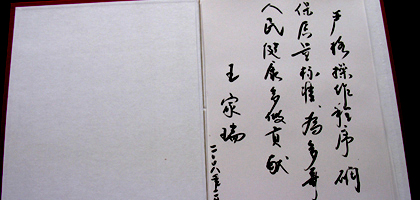 严格操作程序 确
保质量标准，為多哥
人民健康多做贡献
王家瑞
二〇〇八年